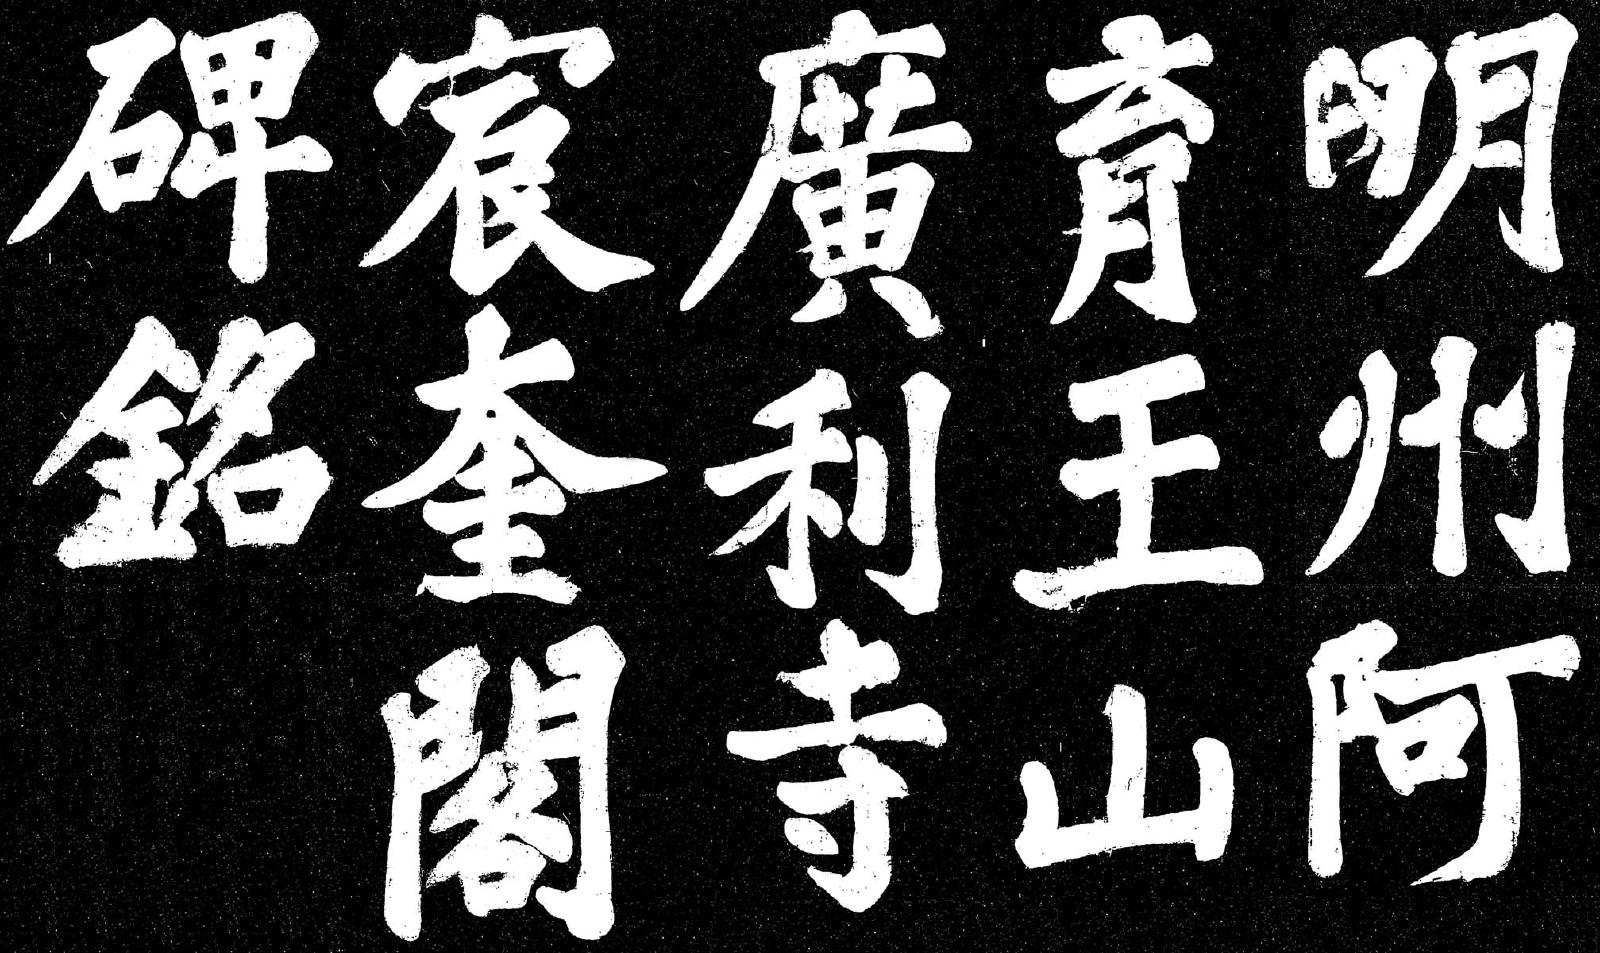 明州阿
育王山
廣利寺
宸奎閣
碑銘